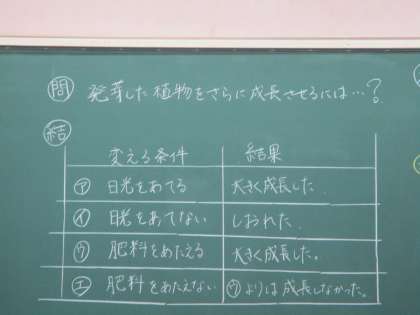 問 発芽した植物をさらに成長させるには…?
結
変える条件 結果
ア 日光をあてる 大きく成長した.
イ 日光をあてない しおれた.
ウ 肥料をあたえる 大きく成長した。
エ 肥料をあたえない ウよりは成長しなかった。